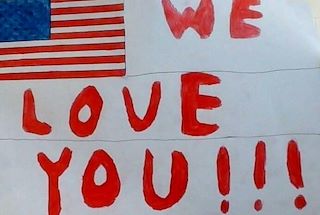 WE
LOVE
YOU!!!